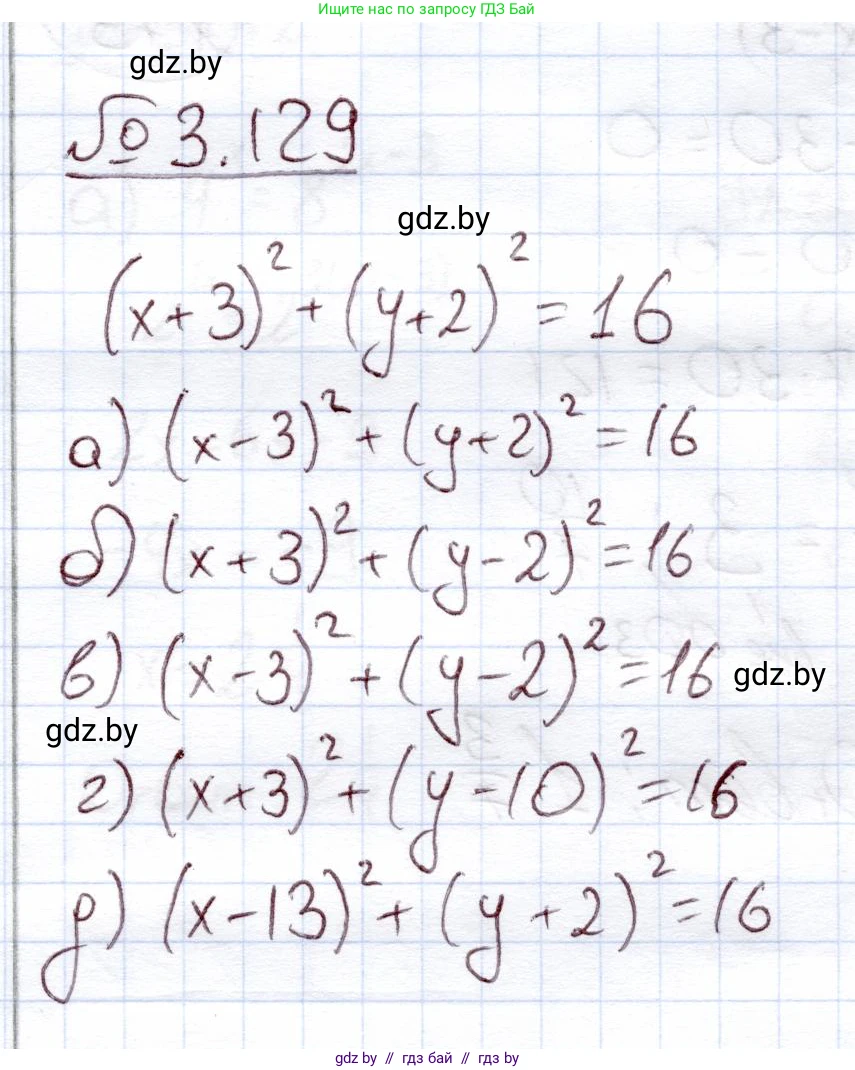 Ищите нас по запросу ГДЗ Бай
gdz.by
№ 3.129
gdz.by
(x+3)² + (y+2)² = 16
а) (x-3)² + (y+2)² = 16
б) (x+3)² + (y-2)² = 16
в) (x-3)² + (y-2)² = 16
gdz.by
gdz.by
г) (x+3)² + (y-10)² = 16
д) (x-13)² + (y+2)² = 16
gdz by // гдз бай // gdz by